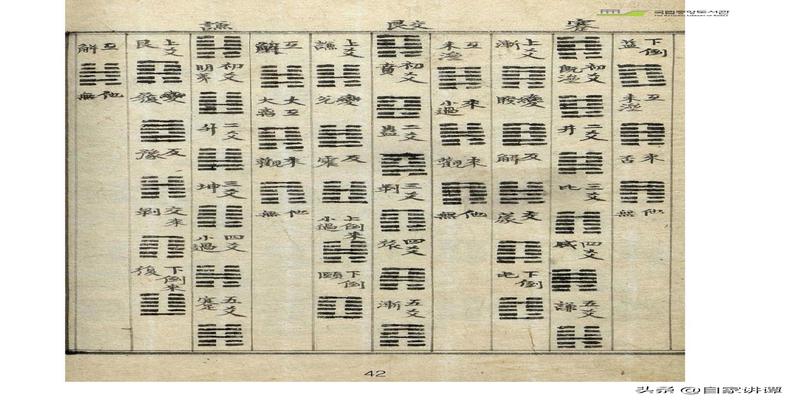 蹇
下倒 益
互 未濟
来 否
他 無
初爻 旣濟
二爻 井
三爻 比
四爻 咸
五爻 謙
上爻 漸
變 睽
反 解
交 蒙
下倒 屯
互 未濟
来 小過
来 觀
他 無
艮
初爻 賁
二爻 蠱
三爻 剝
四爻 旅
五爻 漸
上爻 謙
變 兌
反 震
上倒来 小過
下倒 頤
互 解
大互
来 觀
他 無
謙
初爻 明夷
二爻 升
三爻 坤
四爻 小過
五爻 蹇
上爻 艮
變 履
反 豫
交来 剝
下倒来 復
互 解
他 無
42
국립중앙도서관
THE NATIONAL LIBRARY OF KOREA
头条 @自家讲谭